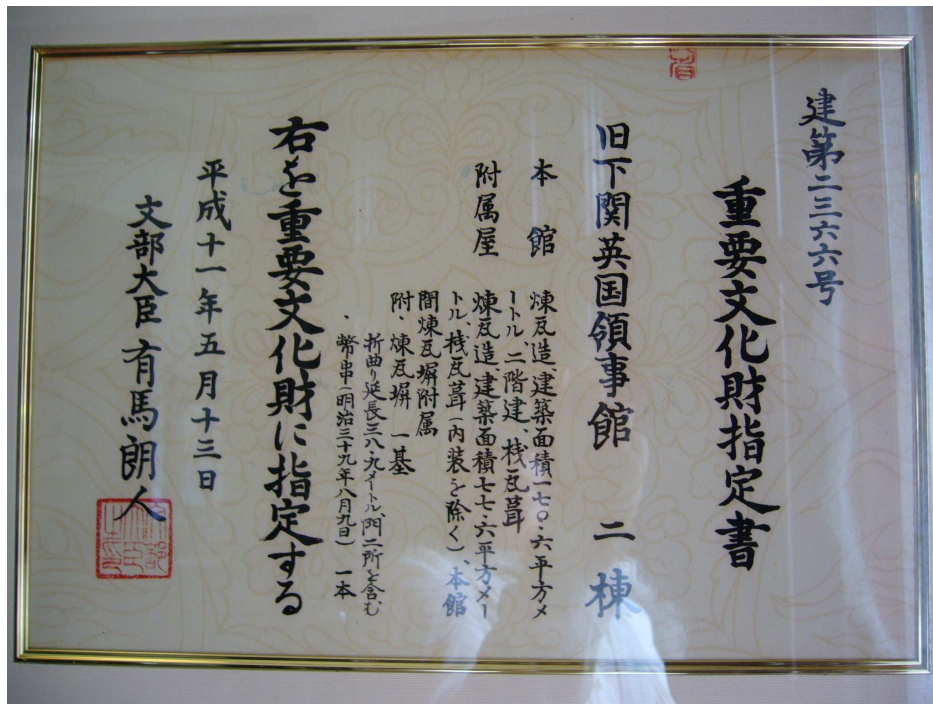 建第二三六六号
重要文化財指定書
旧下関英国領事館 二棟
本館 煉瓦造、建築面積一七〇・六平方メ
ートル、二階建、桟瓦葺
附属屋 煉瓦造、建築面積七七・六平方メー
トル、桟瓦葺(内装を除く)、本館
間煉瓦塀附属
附・煉瓦塀 一基
折曲り延長三八・九メートル、門二所を含む
・幣串(明治三十九年八月九日) 一本
右を重要文化財に指定する
平成十一年五月十三日
文部大臣 有馬朗人